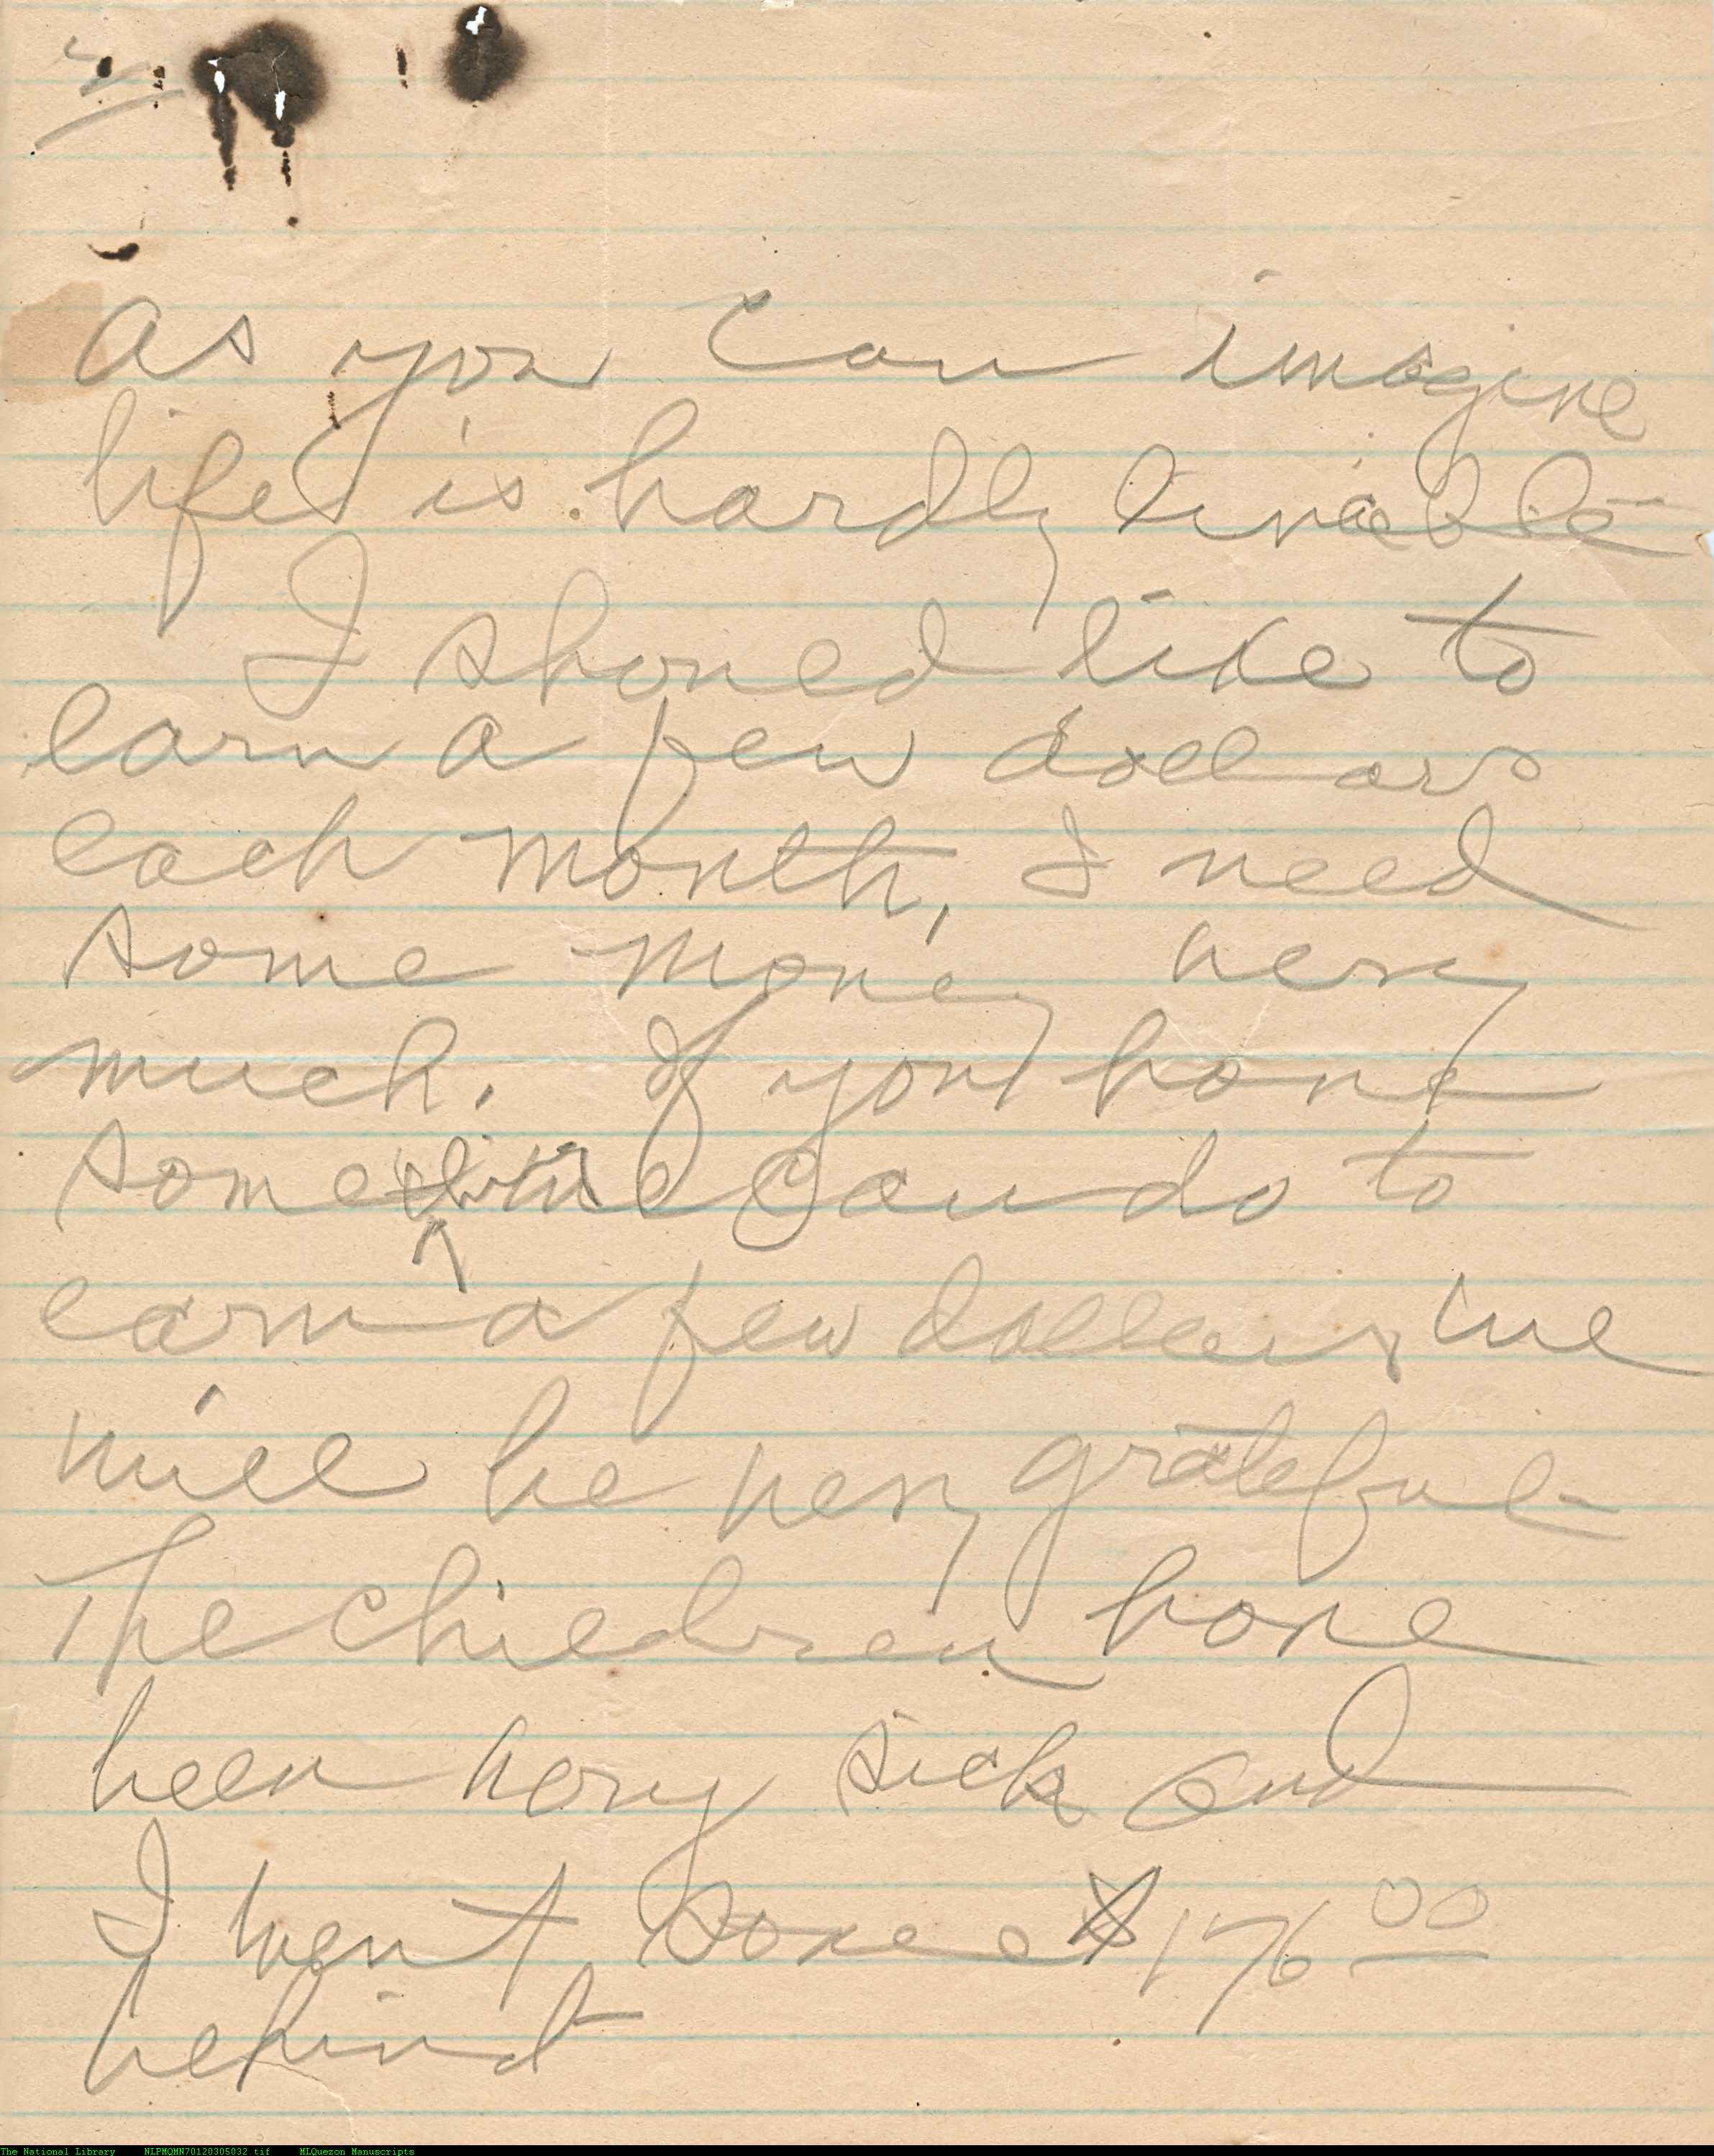 as you can imagine
life is hardly liveable
I should like to
earn a few dollars
each month, I need
some money very
much. If you have
some can do to
earn a few dollars we
will be very grateful
The children have
been very sick and
I went some $176 00
behind
The National Library NLPMQMN70120305032.tif MLQuezon Manuscripts